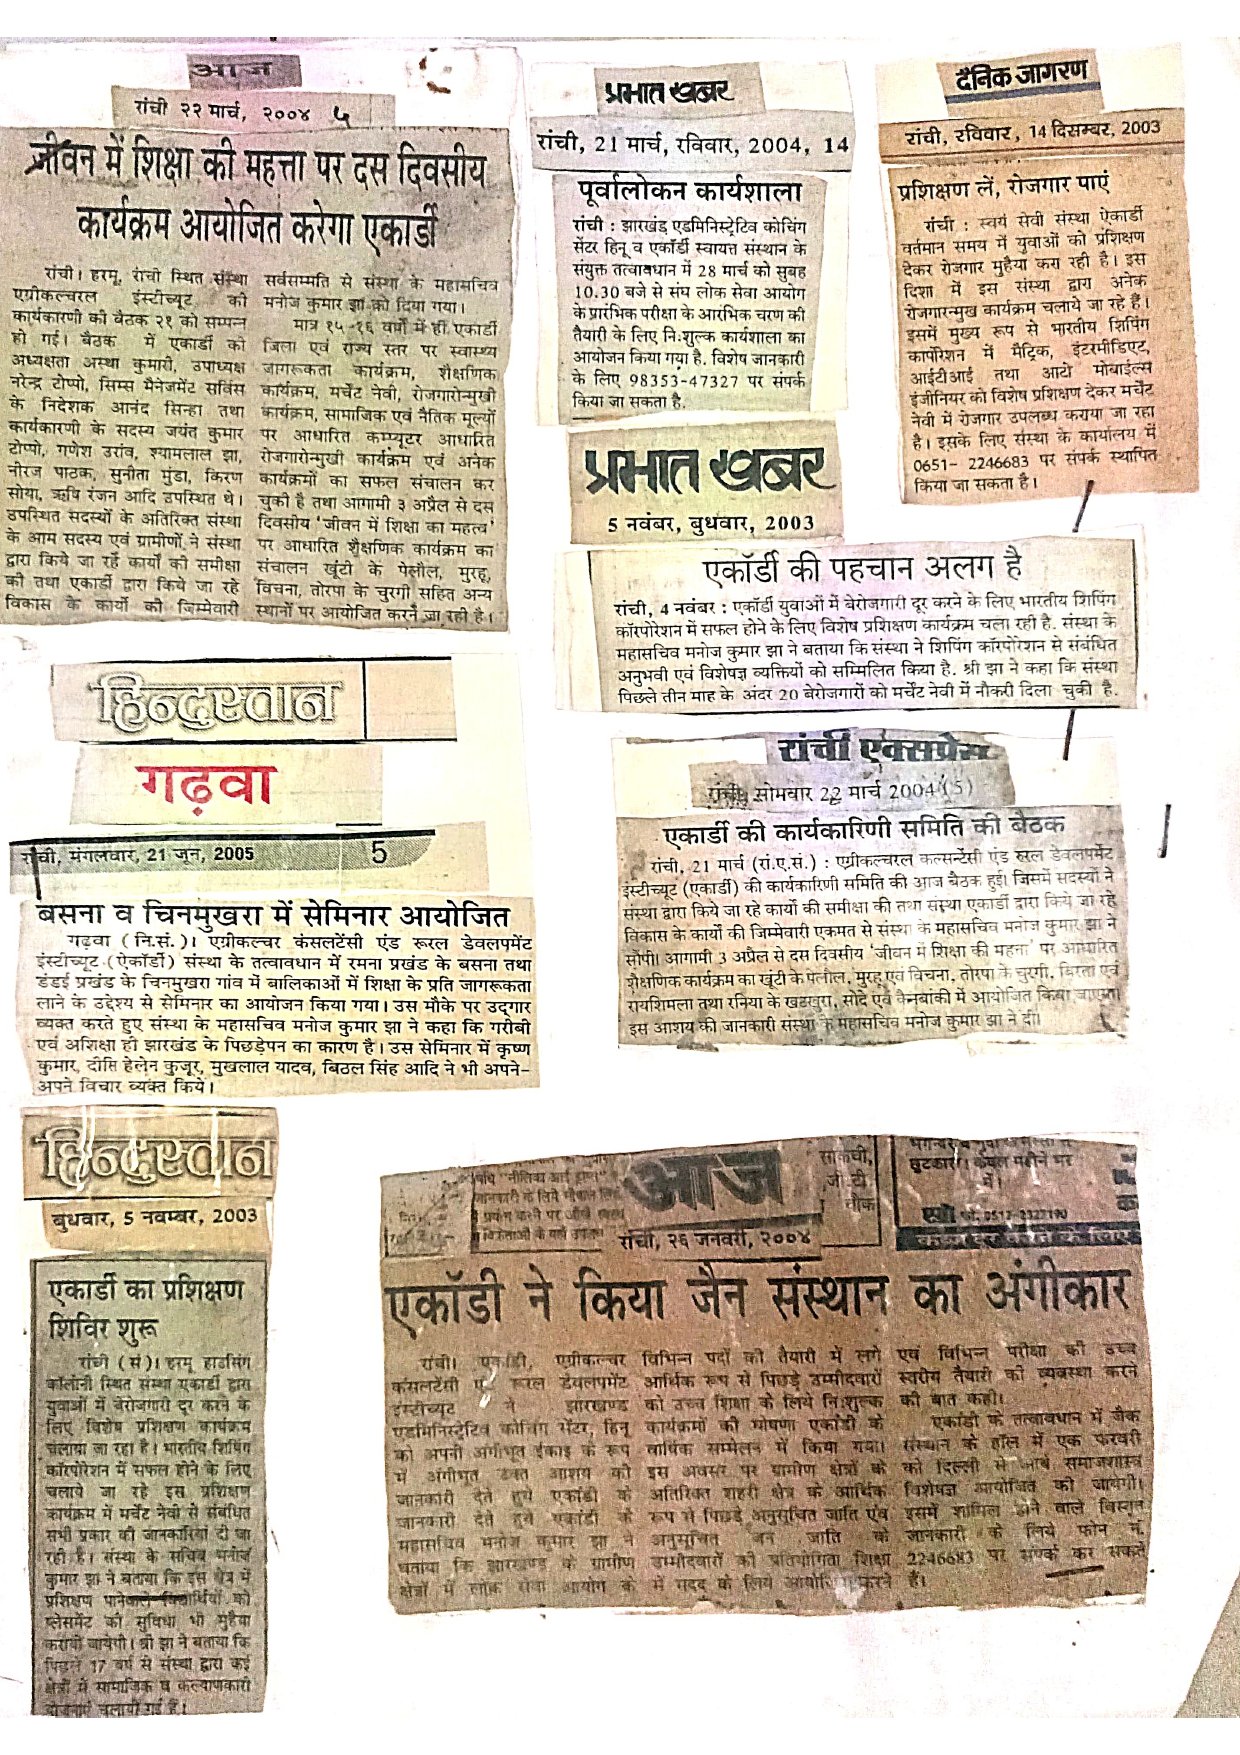 आज
रांची २२ मार्च, २००४ ५
जीवन में शिक्षा की महत्ता पर दस दिवसीय
कार्यक्रम आयोजित करेगा एकार्डी
रांची। हरमू, रांची स्थित संस्था
एग्रीकल्चरल इंस्टीच्यूट की
कार्यकारणी की बैठक २१ को सम्पन्न
हो गई। बैठक में एकार्डी की
अध्यक्षता अस्था कुमारी, उपाध्यक्ष
नरेन्द्र टोप्पो, सिम्स मैनेजमेंट सर्विस
के निदेशक आनंद सिन्हा तथा
कार्यकारणी के सदस्य जयंत कुमार
टोप्पो, गणेश उरांव, श्यामलाल झा,
नीरज पाठक, सुनीता मुंडा, किरण
सोया, ऋषि रंजन आदि उपस्थित थे।
उपस्थित सदस्यों के अतिरिक्त संस्था
के आम सदस्य एवं ग्रामीणों ने संस्था
द्वारा किये जा रहें कार्यो की समीक्षा
की तथा एकार्डी द्वारा किये जा रहे
विकास के कार्यो की जिम्मेवारी
सर्वसम्मति से संस्था के महासचिव
मनोज कुमार झा को दिया गया।
मात्र १५-१६ वर्षो में ही एकार्डी
जिला एवं राज्य स्तर पर स्वास्थ्य
जागरूकता कार्यक्रम, शैक्षणिक
कार्यक्रम, मर्चेंट नेवी, रोजगारोन्मुखी
कार्यक्रम, सामाजिक एवं नैतिक मूल्यों
पर आधारित कम्प्यूटर आधारित
रोजगारोन्मुखी कार्यक्रम एवं अनेक
कार्यक्रमों का सफल संचालन कर
चुकी है तथा आगामी ३ अप्रैल से दस
दिवसीय 'जीवन में शिक्षा का महत्व'
पर आधारित शैक्षणिक कार्यक्रम का
संचालन खूंटी के पेलौल, मुरहू,
विचना, तोरपा के चुरगी सहित अन्य
स्थानों पर आयोजित करने जा रही है।
प्रभात खबर
रांची, 21 मार्च, रविवार, 2004, 14
पूर्वालोकन कार्यशाला
रांची : झारखंड एडमिनिस्ट्रेटिव कोचिंग
सेंटर हिनू व एकॉर्डी स्वायत्त संस्थान के
संयुक्त तत्वावधान में 28 मार्च को सुबह
10.30 बजे से संघ लोक सेवा आयोग
के प्रारंभिक परीक्षा के आरंभिक चरण की
तैयारी के लिए नि:शुल्क कार्यशाला का
आयोजन किया गया है. विशेष जानकारी
के लिए 98353-47327 पर संपर्क
किया जा सकता है.
दैनिक जागरण
रांची, रविवार, 14 दिसम्बर, 2003
प्रशिक्षण लें, रोजगार पाएं
रांची : स्वयं सेवी संस्था ऐकार्डी
वर्तमान समय में युवाओं को प्रशिक्षण
देकर रोजगार मुहैया करा रही है। इस
दिशा में इस संस्था द्वारा अनेक
रोजगारन्मुख कार्यक्रम चलाये जा रहे हैं।
इसमें मुख्य रूप से भारतीय शिपिंग
कार्पोरेशन में मैट्रिक, इंटरमीडिएट,
आईटीआई तथा आटो मोबाईल्स
इंजीनियर को विशेष प्रशिक्षण देकर मर्चेंट
नेवी में रोजगार उपलब्ध कराया जा रहा
है। इसके लिए संस्था के कार्यालय में
0651- 2246683 पर संपर्क स्थापित
किया जा सकता है।
प्रभात खबर
5 नवंबर, बुधवार, 2003
एकॉर्डी की पहचान अलग है
रांची, 4 नवंबर : एकॉर्डी युवाओं में बेरोजगारी दूर करने के लिए भारतीय शिपिंग
कॉरपोरेशन में सफल होने के लिए विशेष प्रशिक्षण कार्यक्रम चला रही है. संस्था के
महासचिव मनोज कुमार झा ने बताया कि संस्था ने शिपिंग कॉरपोरेशन से संबंधित
अनुभवी एवं विशेषज्ञ व्यक्तियों को सम्मिलित किया है. श्री झा ने कहा कि संस्था
पिछले तीन माह के अंदर 20 बेरोजगारों को मर्चेंट नेवी में नौकरी दिला चुकी है.
हिन्दुस्तान
गढ़वा
रांची, मंगलवार, 21 जून, 2005 5
बसना व चिनमुखरा में सेमिनार आयोजित
गढ़वा (नि.सं.)। एग्रीकल्चर कंसलटेंसी एंड रूरल डेवलपमेंट
इंस्टीच्यूट (ऐकॉर्डी) संस्था के तत्वावधान में रमना प्रखंड के बसना तथा
डंडई प्रखंड के चिनमुखरा गांव में बालिकाओं में शिक्षा के प्रति जागरूकता
लाने के उद्देश्य से सेमिनार का आयोजन किया गया। उस मौके पर उद्‌गार
व्यक्त करते हुए संस्था के महासचिव मनोज कुमार झा ने कहा कि गरीबी
एवं अशिक्षा ही झारखंड के पिछड़ेपन का कारण है। उस सेमिनार में कृष्ण
कुमार, दीप्ति हेलेन कुजूर, मुखलाल यादव, बिठल सिंह आदि ने भी अपने-
अपने विचार व्यक्त किये।
रांची एक्सप्रेस
रांची, सोमवार 22 मार्च 2004 (5)
एकार्डी की कार्यकारिणी समिति की बैठक
रांची, 21 मार्च (रां.ए.सं.) : एग्रीकल्चरल कल्सन्टेंसी एंड रूरल डेवलपमेंट
इंस्टीच्यूट (एकार्डी) की कार्यकारिणी समिति की आज बैठक हुई। जिसमें सदस्यों ने
संस्था द्वारा किये जा रहे कार्यों की समीक्षा की तथा संस्था एकार्डी द्वारा किये जा रहे
विकास के कार्यों की जिम्मेवारी एकमत से संस्था के महासचिव मनोज कुमार झा ने
सौंपी। आगामी 3 अप्रैल से दस दिवसीय 'जीवन में शिक्षा की महत्ता' पर आधारित
शैक्षणिक कार्यक्रम का खूंटी के पेलौल, मुरहू एवं विचना, तोरपा के चुरगी, बिरता एवं
रायशिमला तथा रनिया के खटखुरा, सोदे एवं कैनबांकी में आयोजित किया जाएगा।
इस आशय की जानकारी संस्था के महासचिव मनोज कुमार झा ने दी।
हिन्दुस्तान
बुधवार, 5 नवम्बर, 2003
एकार्डी का प्रशिक्षण
शिविर शुरू
रांची (सं)। हरमू हाउसिंग
कॉलोनी स्थित संस्था एकार्डी द्वारा
युवाओं में बेरोजगारी दूर करने के
लिए विशेष प्रशिक्षण कार्यक्रम
चलाया जा रहा है। भारतीय शिपिंग
कॉरपोरेशन में सफल होने के लिए
चलाये जा रहे इस प्रशिक्षण
कार्यक्रम में मर्चेंट नेवी से संबंधित
सभी प्रकार की जानकारियां दी जा
रही है। संस्था के सचिव मनोज
कुमार झा ने बताया कि इस क्षेत्र में
प्रशिक्षण पानेवाले विद्यार्थियों को
प्लेसमेंट की सुविधा भी मुहैया
करायी जायेगी। श्री झा ने बताया कि
पिछले 17 वर्ष से संस्था द्वारा कई
क्षेत्रों में सामाजिक व कल्याणकारी
योजनाएं चलायी गई हैं।
आज
रांची, २६ जनवरी, २००४
एकॉडी ने किया जैन संस्थान का अंगीकार
रांची। एकॉडी, एग्रीकल्चर
कंसलटेंसी एंड रूरल डेवलपमेंट
इंस्टीच्यूट ने झारखण्ड
एडमिनिस्ट्रेटिव कोचिंग सेंटर, हिनू
को अपनी अंगीभूत इकाई के रूप
में अंगीभूत उक्त आशय की
जानकारी देते हुये एकॉडी के
जानकारी देते हुये एकॉडी के
महासचिव मनोज कुमार झा ने
बताया कि झारखण्ड के ग्रामीण
क्षेत्रों में लोक सेवा आयोग के
विभिन्न पदों की तैयारी में लगे
आर्थिक रूप से पिछड़े उम्मीदवारों
को उच्च शिक्षा के लिये निःशुल्क
कार्यक्रमों की घोषणा एकॉडी के
वार्षिक सम्मेलन में किया गया।
इस अवसर पर ग्रामीण क्षेत्रों के
अतिरिक्त शहरी क्षेत्र के आर्थिक
रूप से पिछड़े अनुसूचित जाति एंव
अनुसूचित जन जाति के
उम्मीदवारों को प्रतियोगिता शिक्षा
में मदद के लिये आयोजित करने
एवं विभिन्न परीक्षा की उच्च
स्तरीय तैयारी की व्यवस्था करने
की बात कही।
एकॉडी के तत्वावधान में जैक
संस्थान के हॉल में एक फरवरी
को दिल्ली से आये समाजशास्त्र
विशेषज्ञ आयोजित की जायेगी।
इसमें शामिल होने वाले विस्तृत
जानकारी के लिये फोन नं.
2246683 पर सम्पर्क कर सकते
हैं।